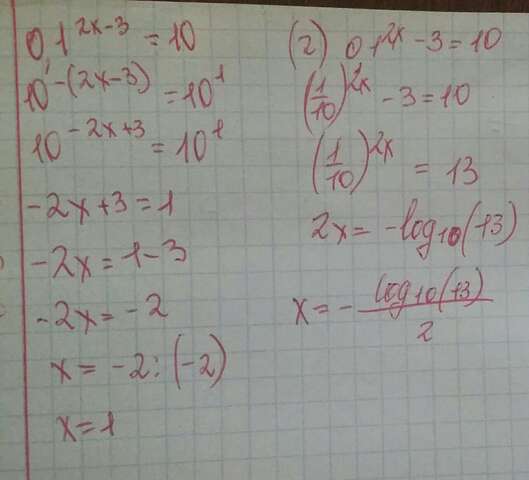 0,1^(2x-3) = 10
10^(-(2x-3)) = 10^1
10^(-2x+3) = 10^1
-2x+3=1
-2x=1-3
-2x=-2
x=-2:(-2)
x=1
(2) 0,1^(2x) -3=10
(1/10)^(2x) -3=10
(1/10)^(2x) = 13
2x=-log₁₀(13)
x=- log₁₀(13)/2